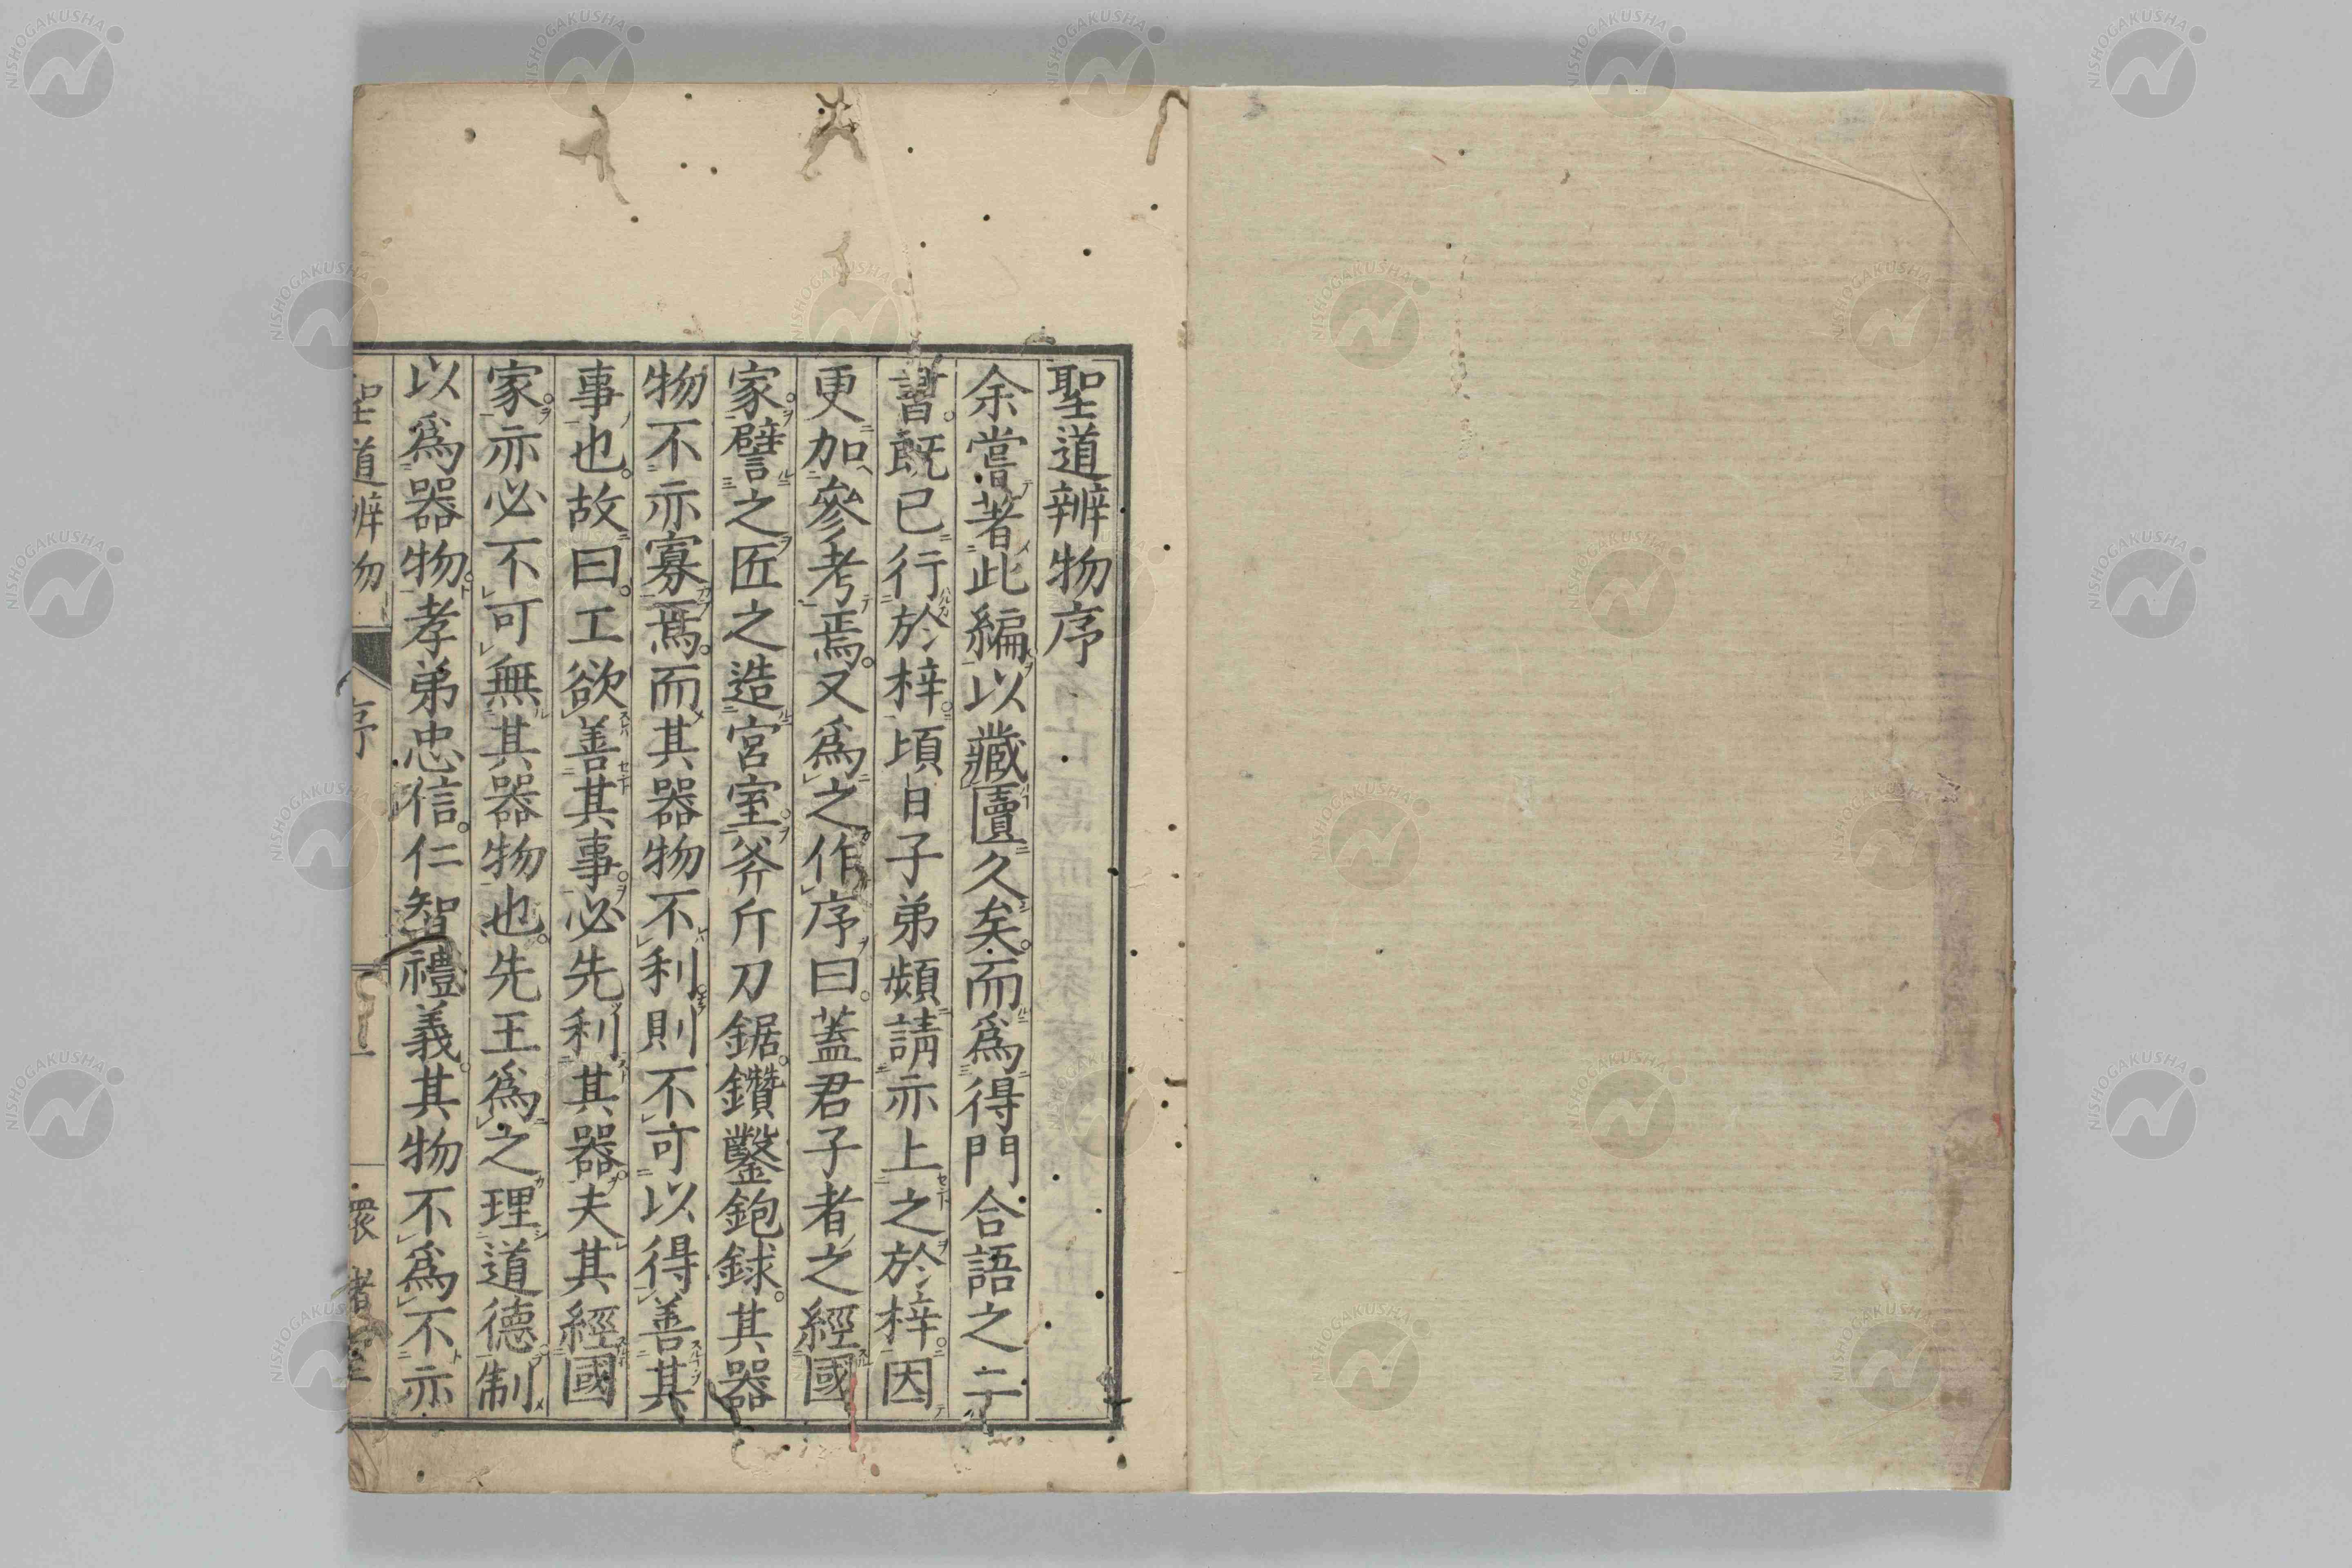 聖道辨物序
余嘗著此編以藏匵久矣而爲得門合語之二
書旣已行於梓頃日子弟頻請亦上之於梓因
更加參考焉又爲之作序曰蓋君子者之經國
家譬之匠之造宮室斧斤刀鋸鑽鑿鉋銶其器
物不亦寡焉而其器物不利則不可以得善其
事也故曰工欲善其事必先利其器夫其經國
家亦必不可無其器物也先王爲之理道德制
以爲器物孝弟忠信仁智禮義其物不爲不亦
聖道辨物 序
NISHOGAKUSHA